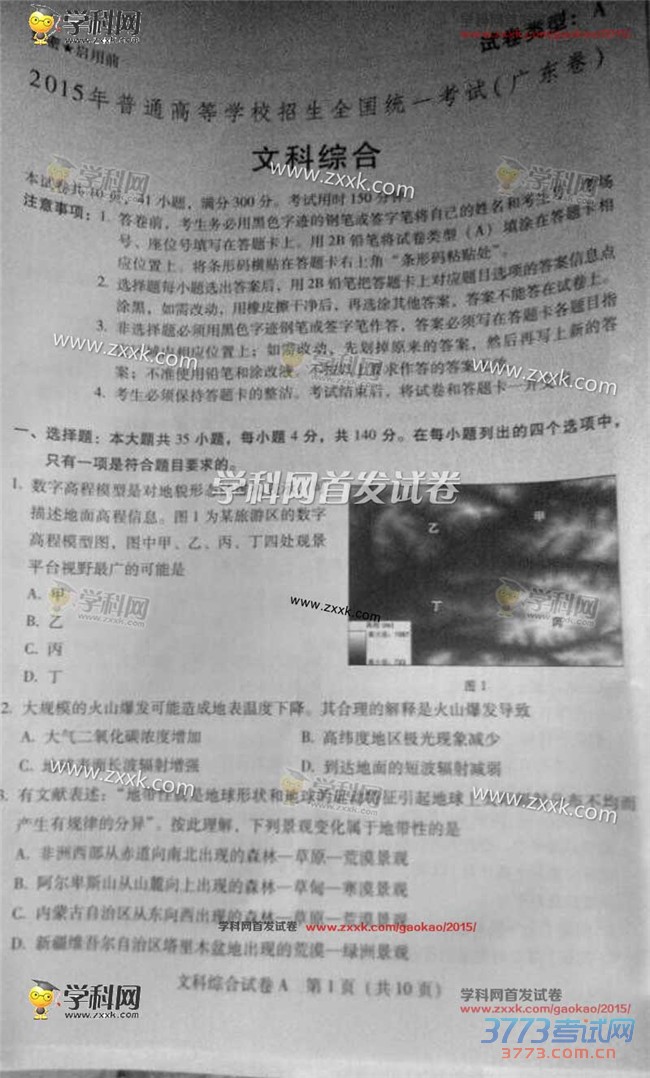 学科网
zxxk.com
学科网首发试卷
www.zxxk.com/gaokao/2015/
★启用前
试卷类型：A
2015年普通高等学校招生全国统一考试（广东卷）
文科综合
学科网
www.zxxk.com
学科网
zxxk.com
本试卷共10页，41小题，满分300分。考试用时150分钟
注意事项：1. 答卷前，考生务必用黑色字迹的钢笔或签字笔将自己的姓名和考生
号、座位号填写在答题卡上。用2B铅笔将试卷类型（A）填涂在答题卡相
应位置上。将条形码横贴在答题卡右上角“条形码粘贴处”。
2. 选择题每小题选出答案后，用2B铅笔把答题卡上对应题目选项的答案信息点
涂黑，如需改动，用橡皮擦干净后，再选涂其他答案，答案不能答在试卷上。
3. 非选择题必须用黑色字迹钢笔或签字笔作答，答案必须写在答题卡各题目指
相应位置上；如需改动，先划掉原来的答案，然后再写上新的答
案；不准使用铅笔和涂改液。要求作答的答案
4. 考生必须保持答题卡的整洁。考试结束后，将试卷和答题卡一
www.zxxk.com
学科网
zxxk.com
www.zxxk.com
一、选择题：本大题共35小题，每小题4分，共140分。在每小题列出的四个选项中，
只有一项是符合题目要求的。
学科网首发试卷
1. 数字高程模型是对地貌形态
描述地面高程信息。图1为某旅游区的数字
高程模型图，图中甲、乙、丙、丁四处观景
平台视野最广的可能是
A. 甲
B. 乙
C. 丙
D. 丁
甲
乙
丁
丙
图1
学科网
zxxk.com
www.zxxk.com
学科网
zxxk.com
2. 大规模的火山爆发可能造成地表温度下降。其合理的解释是火山爆发导致
A. 大气二氧化碳浓度增加 B. 高纬度地区极光现象减少
C. 长波辐射增强 D. 到达地面的短波辐射减弱
www.zxxk.com
学科网
zxxk.com
www.zxxk.com
3. 有文献表述：“地带性就是地球形状和地球的征引起地球上不均而
产生有规律的分异”。按此理解，下列景观变化属于地带性的是
A. 非洲西部从赤道向南北出现的森林—草原—荒漠景观
B. 阿尔卑斯山从山麓向上出现的森林—草甸—寒漠景观
C. 内蒙古自治区从东向西出现的森林—草原—荒漠景观
D. 新疆维吾尔自治区塔里木盆地出现的荒漠—绿洲景观
学科网首发试卷 www.zxxk.com/gaokao/2015/
文科综合试卷A 第1页（共10页）
学科网
zxxk.com
学科网首发试卷
www.zxxk.com/gaokao/2015/
3773考试网
3773.com.cn